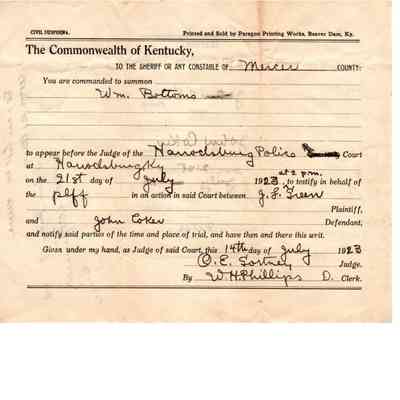 CIVIL SUBPOENA. Printed and Sold by Paragon Printing Works, Beaver Dam, Ky.
The Commonwealth of Kentucky,
TO THE SHERIFF OR ANY CONSTABLE OF Mercer COUNTY:
You are commanded to summon
Wm. Bottoms
to appear before the Judge of the Harrodsburg Police Court
at Harrodsburg Ky
at 2 p.m.
on the 21st day of July 1923, to testify in behalf of
the plff in an action in said Court between J. L. Freen
Plaintiff,
and John Coker Defendant,
and notify said parties of the time and place of trial, and have then and there this writ.
Given under my hand, as Judge of said Court, this 14th day of July 1923
C. E. Judge.
By W. H. Phillips D. Clerk.